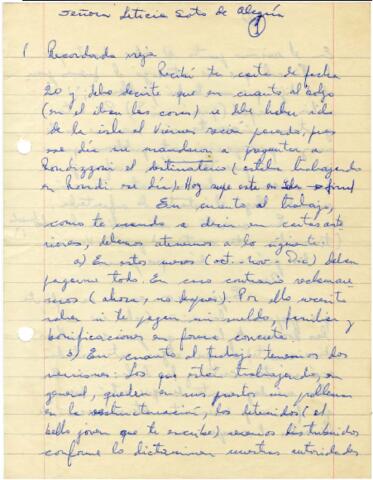 Señora Leticia Soto de Alegría
1
1 Recordada vieja
Recibí tu carta de fecha
20 y debo decirte que en cuanto al bolso
(en él iban las cosas) se debe haber ido
de la isla el viernes recién pasado, pues
ese día me mandaron a preguntar a
Rondizzoni el destinatario (estaba trabajando
en Rondi ese día). Hoy supe este en
En cuanto al trabajo,
como te mandé a decir en cartas ante
riores, debemos atenernos a lo siguiente:
a) En estos meses (oct - nov - Dic) deben
pagarme todo. En caso contrario reclamare
mos (ahora, no después). Por ello necesito
saber si te pagan mi sueldo, familiar y
bonificaciones en forma correcta.
b) En cuanto al trabajo tenemos dos
versiones: Los que están trabajando, en
general, quedan en sus puestos sin problemas
en la reestructuración, los detenidos (el
bello joven que te escribe) seremos distribuidos
conforme lo dictaminen nuestras autoridades